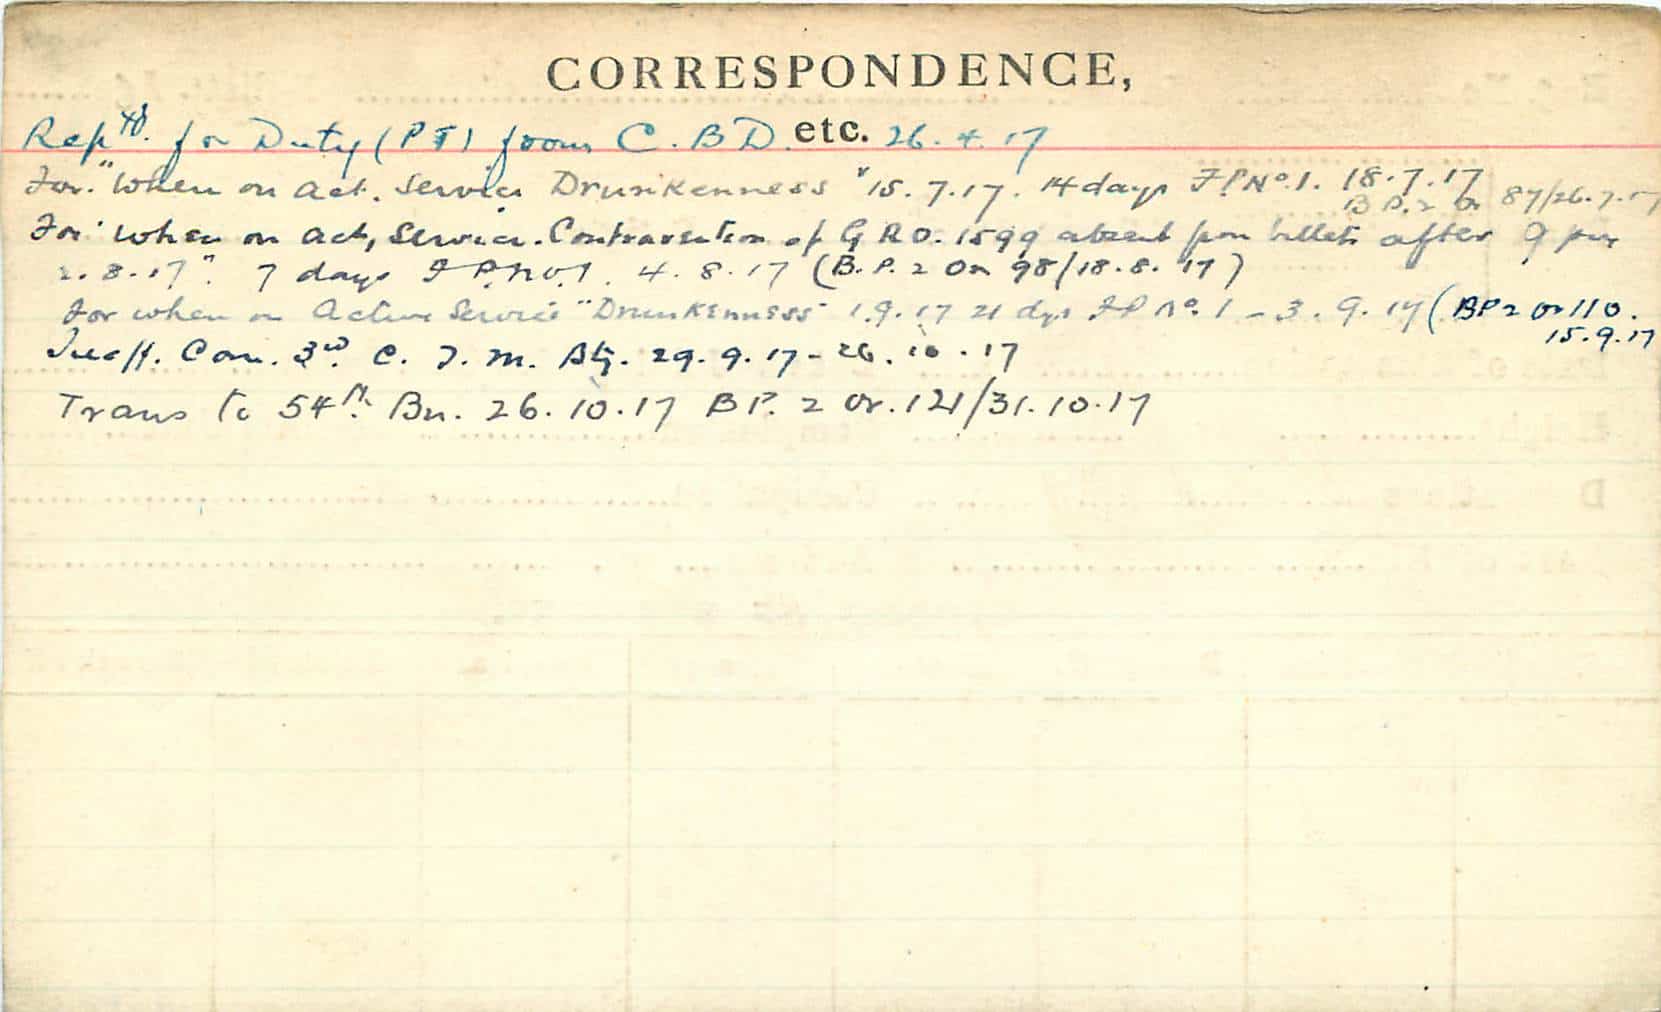 CORRESPONDENCE,
etc.
Rep^td. for Duty (PT) from C.B.D. 26.4.17
For "when on act. service Drunkenness" 15.7.17. 14 days F.P. No. 1. 18.7.17
B P. 2 Or 87/26.7.17
For "when on act, service. Contravention of G R O. 1599 absent from billets after 9 pm
2.8.17". 7 days F P. No 1. 4.8.17 (B.P. 2 Or 98/18.8.17)
For when on Active Service "Drunkenness" 1.9.17 21 dys F P No. 1 - 3.9.17 (BP 2 Or 110.
15.9.17
Com. 3rd C. T. M. Bty. 29.9.17 - 26.10.17
Trans to 54th. Bn. 26.10.17 BP. 2 Or. 121/31.10.17